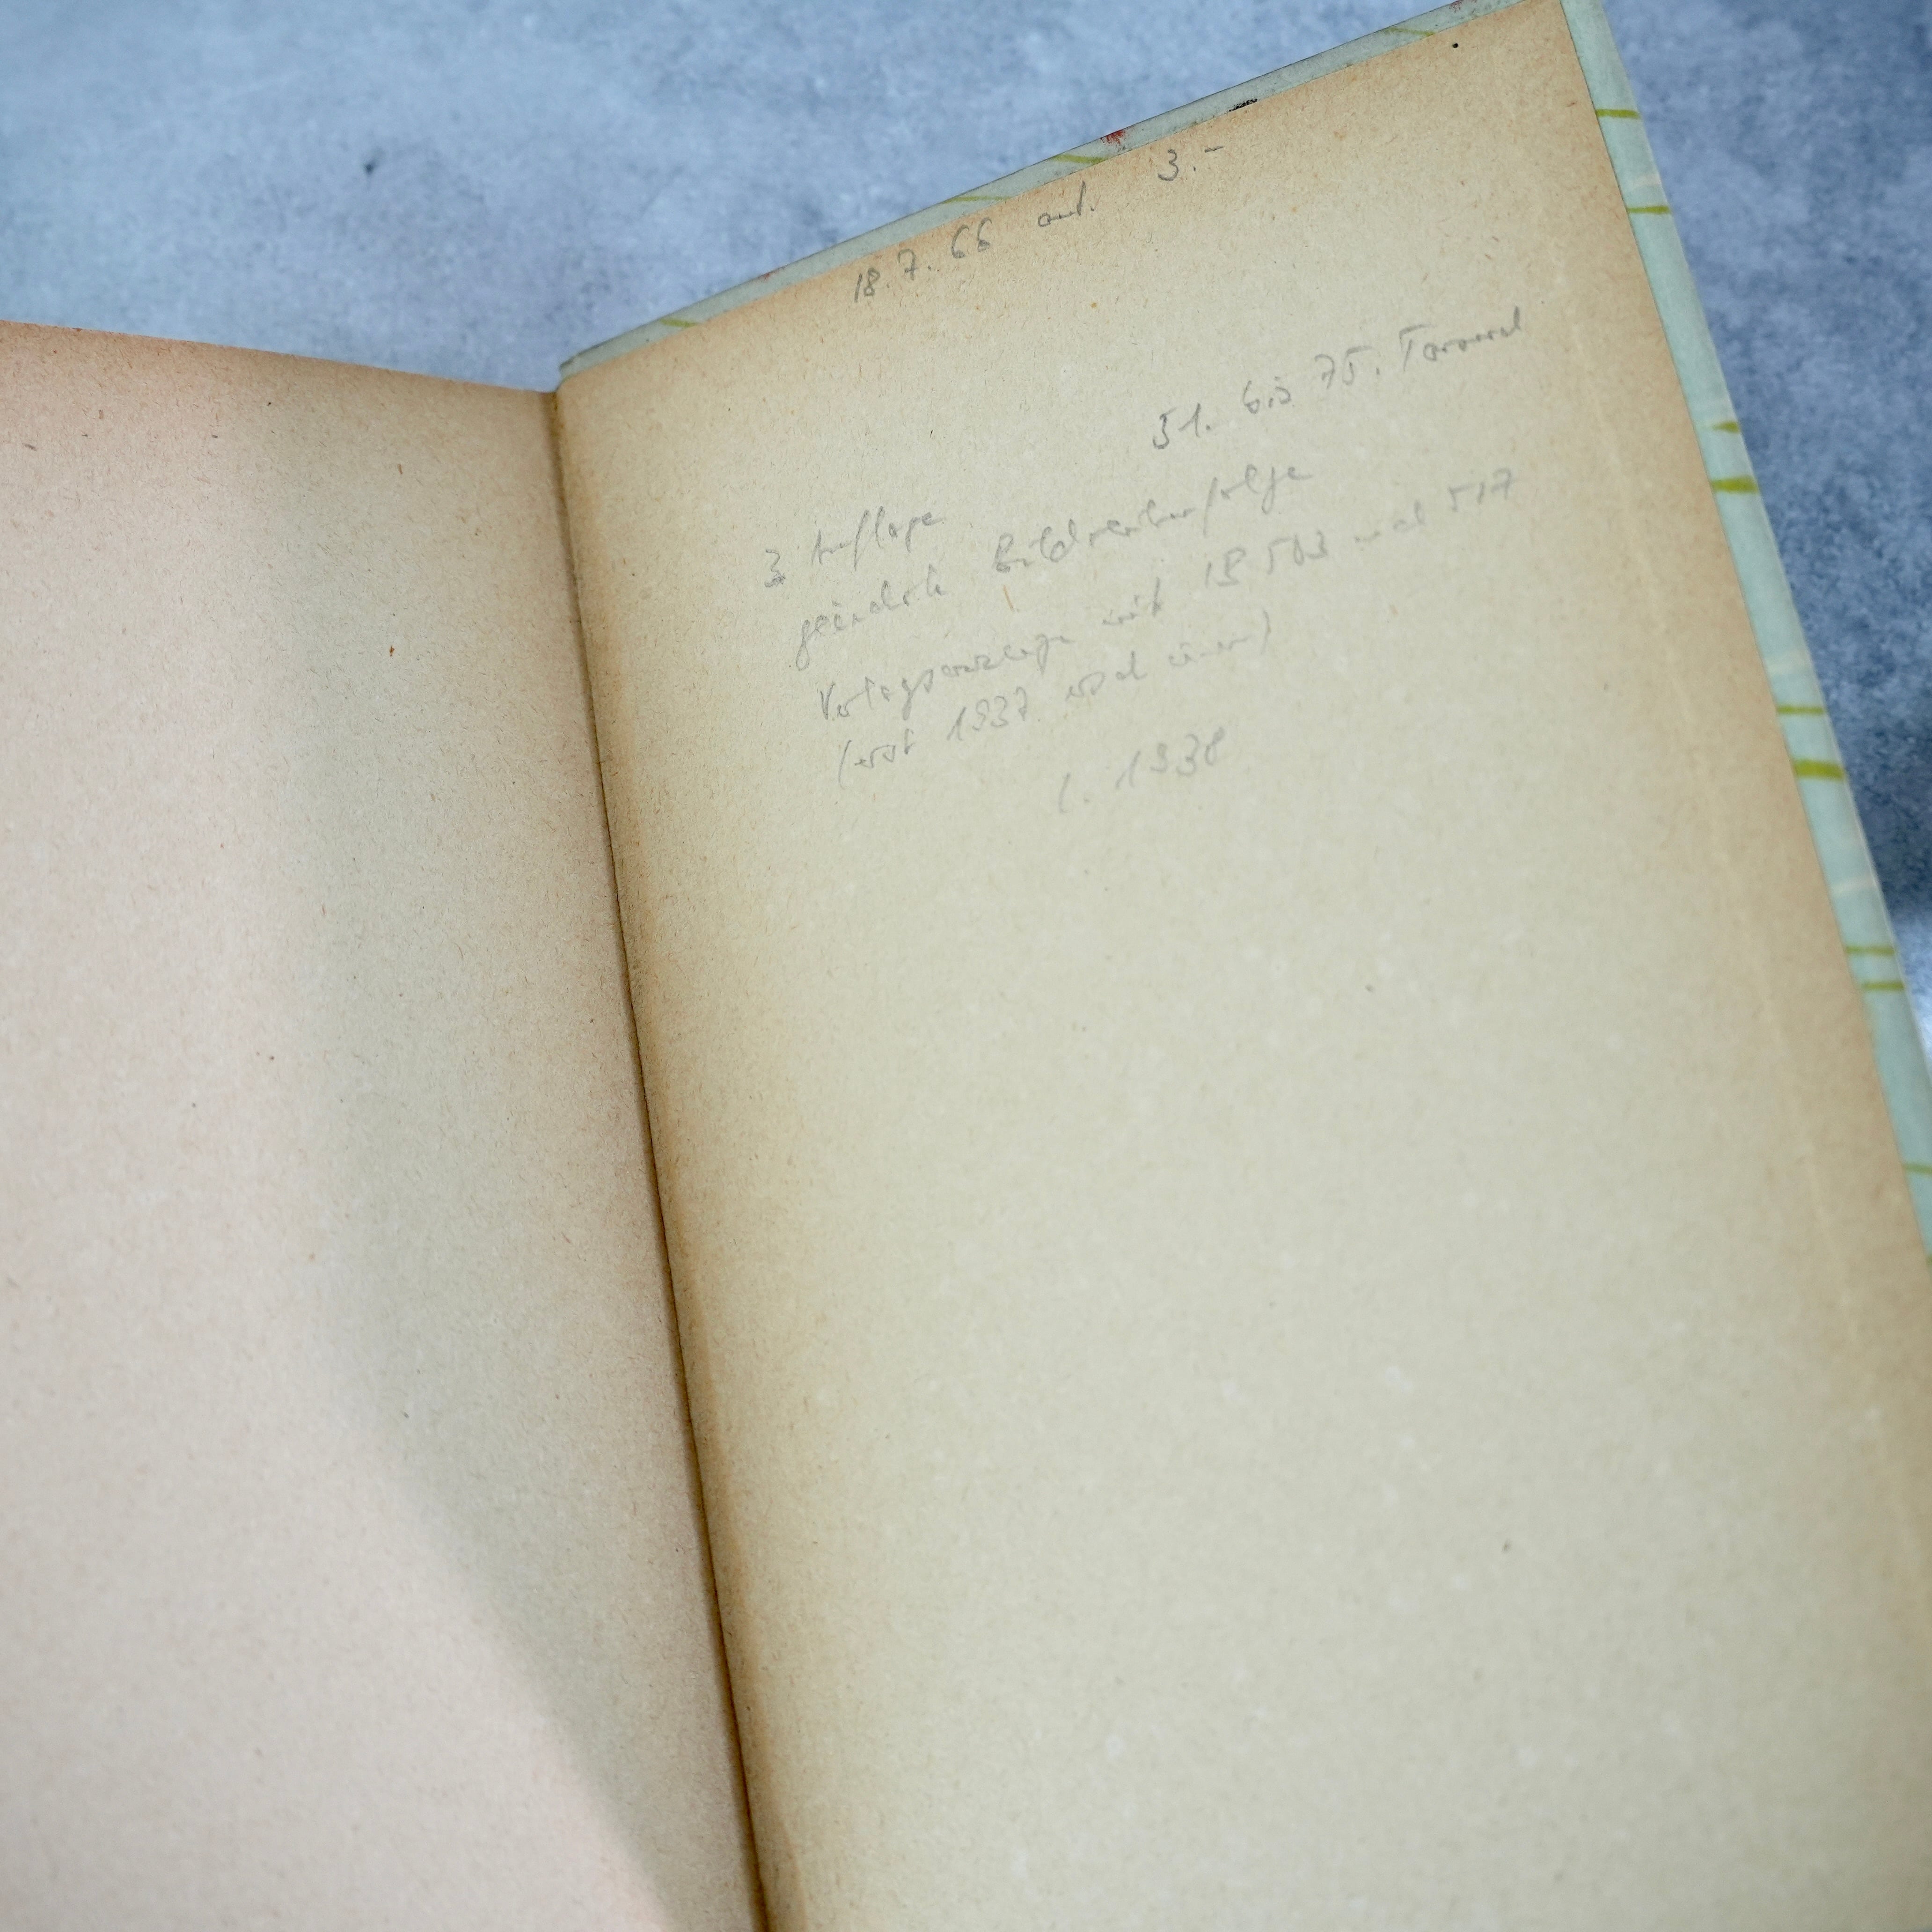 18.7.66 ant. 3.-
51. bis 75. Tausend
3 Auflage
geänderte Bildreihenfolge
Verlagsanzeige mit IB 503 und 517
(erst 1937 erschienen)
1938